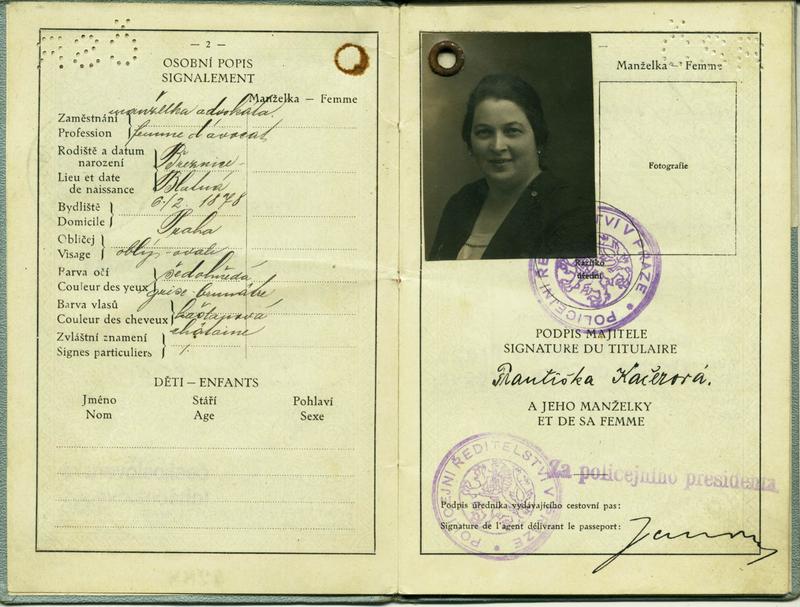 — 2 —
OSOBNÍ POPIS
SIGNALEMENT
Manželka — Femme
Zaměstnání manželka advokáta.
Profession femme d'avocat
Rodiště a datum narození Březnice -
Lieu et date de naissance Blatná
6/2. 1878
Bydliště
Domicile Praha
Obličej
Visage oblý-ovale
Barva očí šedohnědá
Couleur des yeux grise-brunâtre
Barva vlasů kaštanová
Couleur des cheveux châtaine
Zvláštní znamení
Signes particuliers /.
DĚTI — ENFANTS
Jméno Stáří Pohlaví
Nom Age Sexe
Manželka — Femme
Fotografie
Razítko
úřední
POLICEJNÍ ŘEDITELSTVÍ V PRAZE
PODPIS MAJITELE
SIGNATURE DU TITULAIRE
Františka Kačerová.
A JEHO MANŽELKY
ET DE SA FEMME
POLICEJNÍ ŘEDITELSTVÍ V PRAZE
Za policejního presidenta
Podpis úředníka vydávajícího cestovní pas:
Signature de l'agent délivrant le passeport: